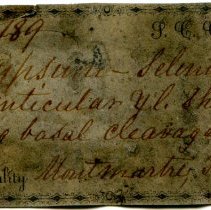 189 S. C.
Gypsum – Seleni
nticular Yl. Sh
basal cleavag
ality Montmartre